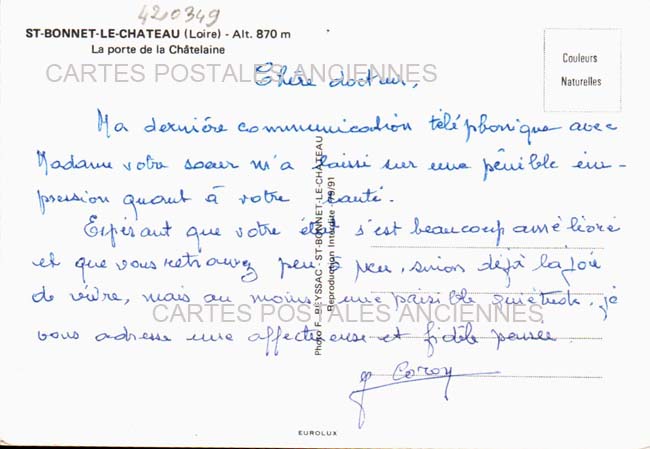 420349
ST-BONNET-LE-CHATEAU (Loire) - Alt. 870 m
La porte de la Châtelaine
Couleurs
Naturelles
CARTES POSTALES ANCIENNES
Chère docteur,
Ma dernière communication téléphonique avec
Madame votre soeur m'a laissé sur une pénible im-
pression quant à votre santé.
Espérant que votre état s'est beaucoup amélioré
et que vous retrouvez peu à peu, sinon déjà la joie
de vivre, mais au moins une paisible quiétude, je
vous adresse une affectueuse et fidèle pensée.
CARTES POSTALES ANCIENNES
Photo F. REYSSAC - ST-BONNET-LE-CHATEAU
Reproduction Interdite
EUROLUX